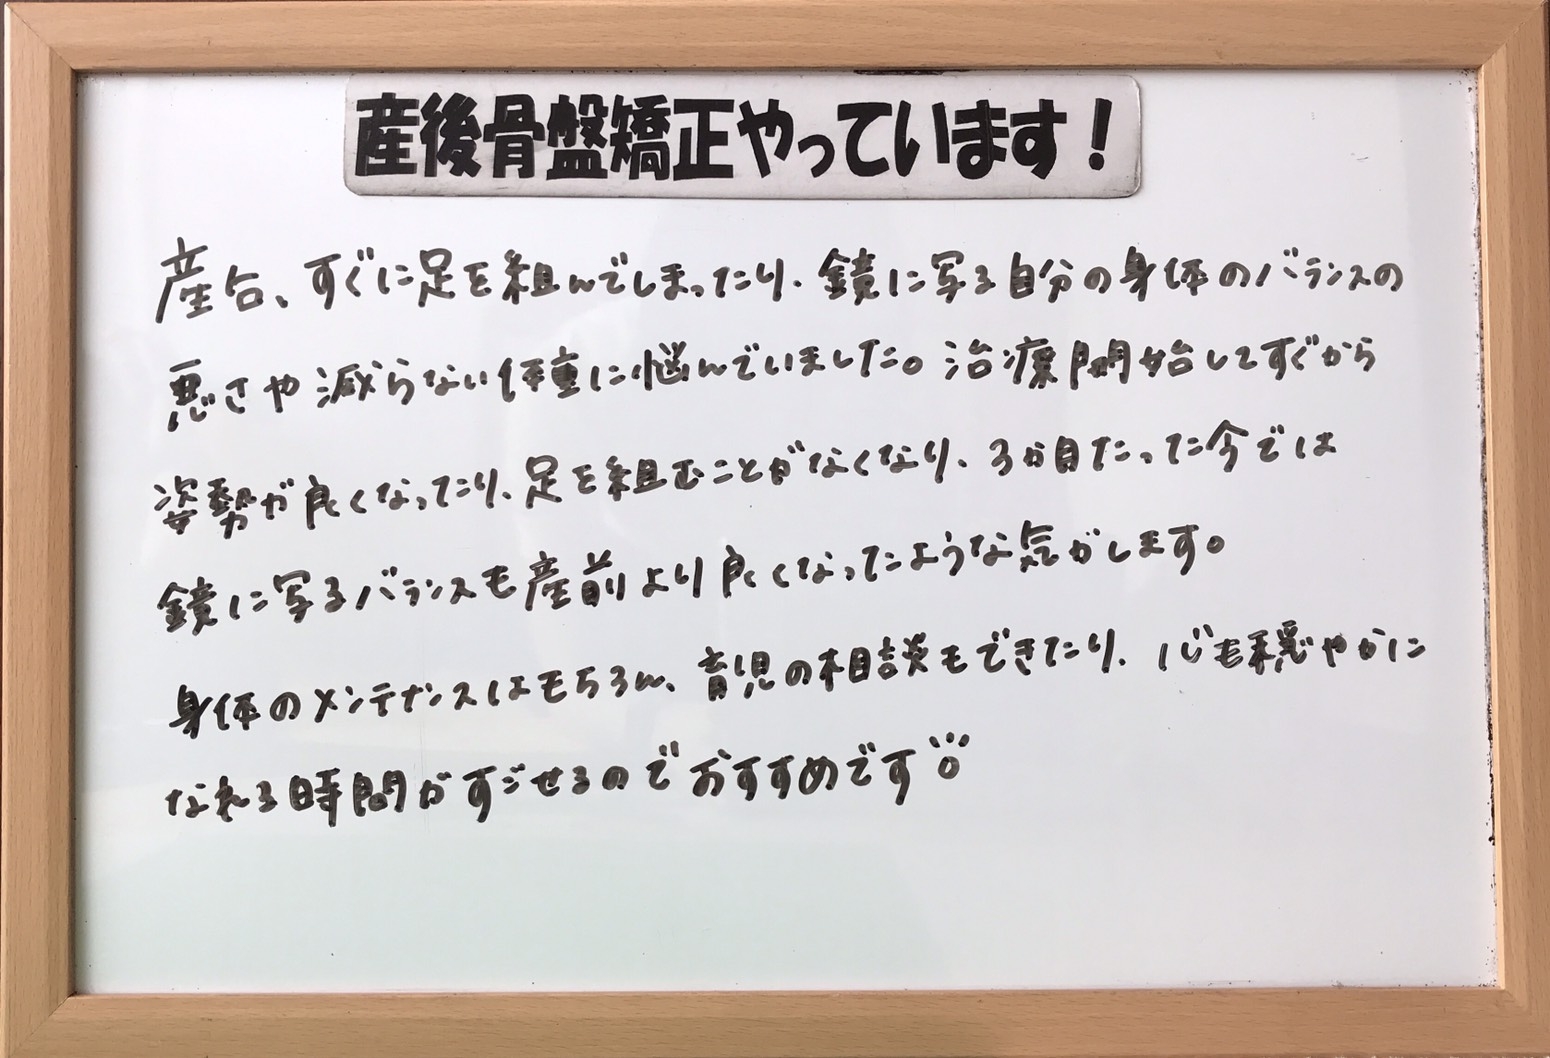 産後骨盤矯正やっています!
産后、すぐに足を組んでしまったり、鏡に写る自分の身体のバランスの
悪さや減らない体重に悩んでいました。治療開始してすぐから
姿勢が良くなったり、足を組むことがなくなり、3か月たった今では
鏡に写るバランスも産前より良くなったような気がします。
身体のメンテナンスはもちろん、育児の相談もできたり、心も穏やかに
なれる時間がすごせるのでおすすめです